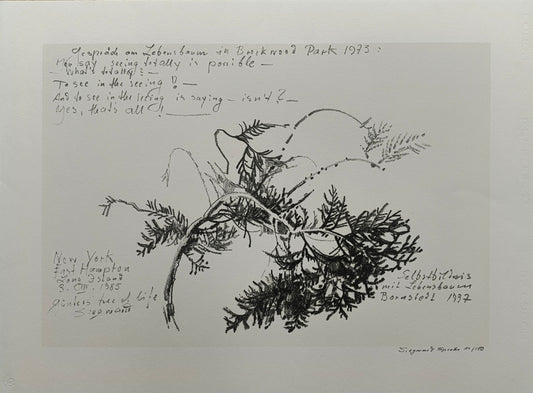 Gespräch am Lebensbaum in Brockwood Park 1973:
You say seeing totally is possible —
— What's totally? —
To see in the seeing !? —
And to see in the seeing is saying — isn't? —
Yes, that's all!
New York
East Hampton
Long Island
1985
tree of life
Siegward
Selbstbildnis
mit Lebensbaum
Bornstedt 1997
Siegward Sprotte